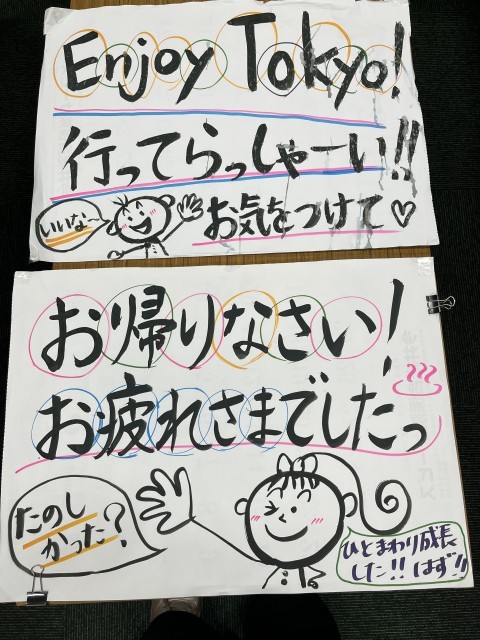 Enjoy Tokyo!
行ってらっしゃーい!!
いいな〜
お気をつけて♡
お帰りなさい!
お疲れさまでしたっ
たのし
かった?
ひとまわり成長
した!! はず!!